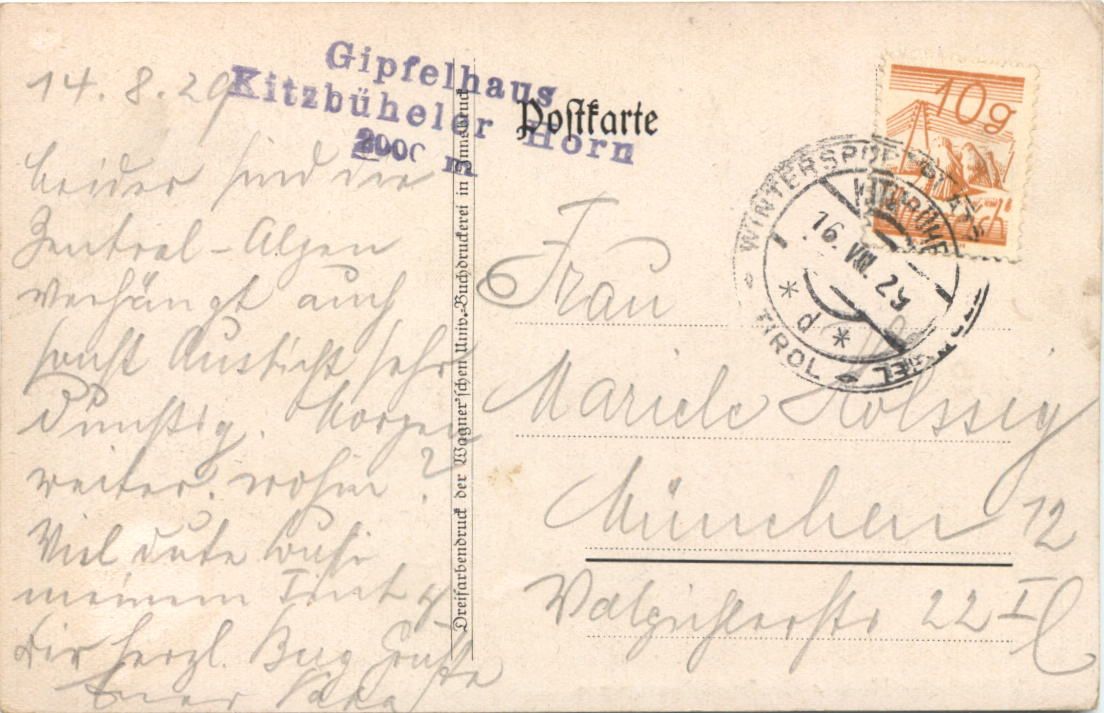 Gipfelhaus
Kitzbüheler Horn
2000 m
14. 8. 29
Leider sind die
Zentral-Alpen
verhängt auch
sonst Aussicht sehr
dunstig. Morgen
weiter. wohin?
Viel
meinem
Dir herzl. Grüße
Euer
Dreifarbendruck der Wagner'schen Univ.-Buchdruckerei in Innsbruck
Postkarte
10g
WINTERSPORT
KITZBÜHEL
16. VIII. 29
* d *
TIROL
Frau
Mariele
München 12
22 II